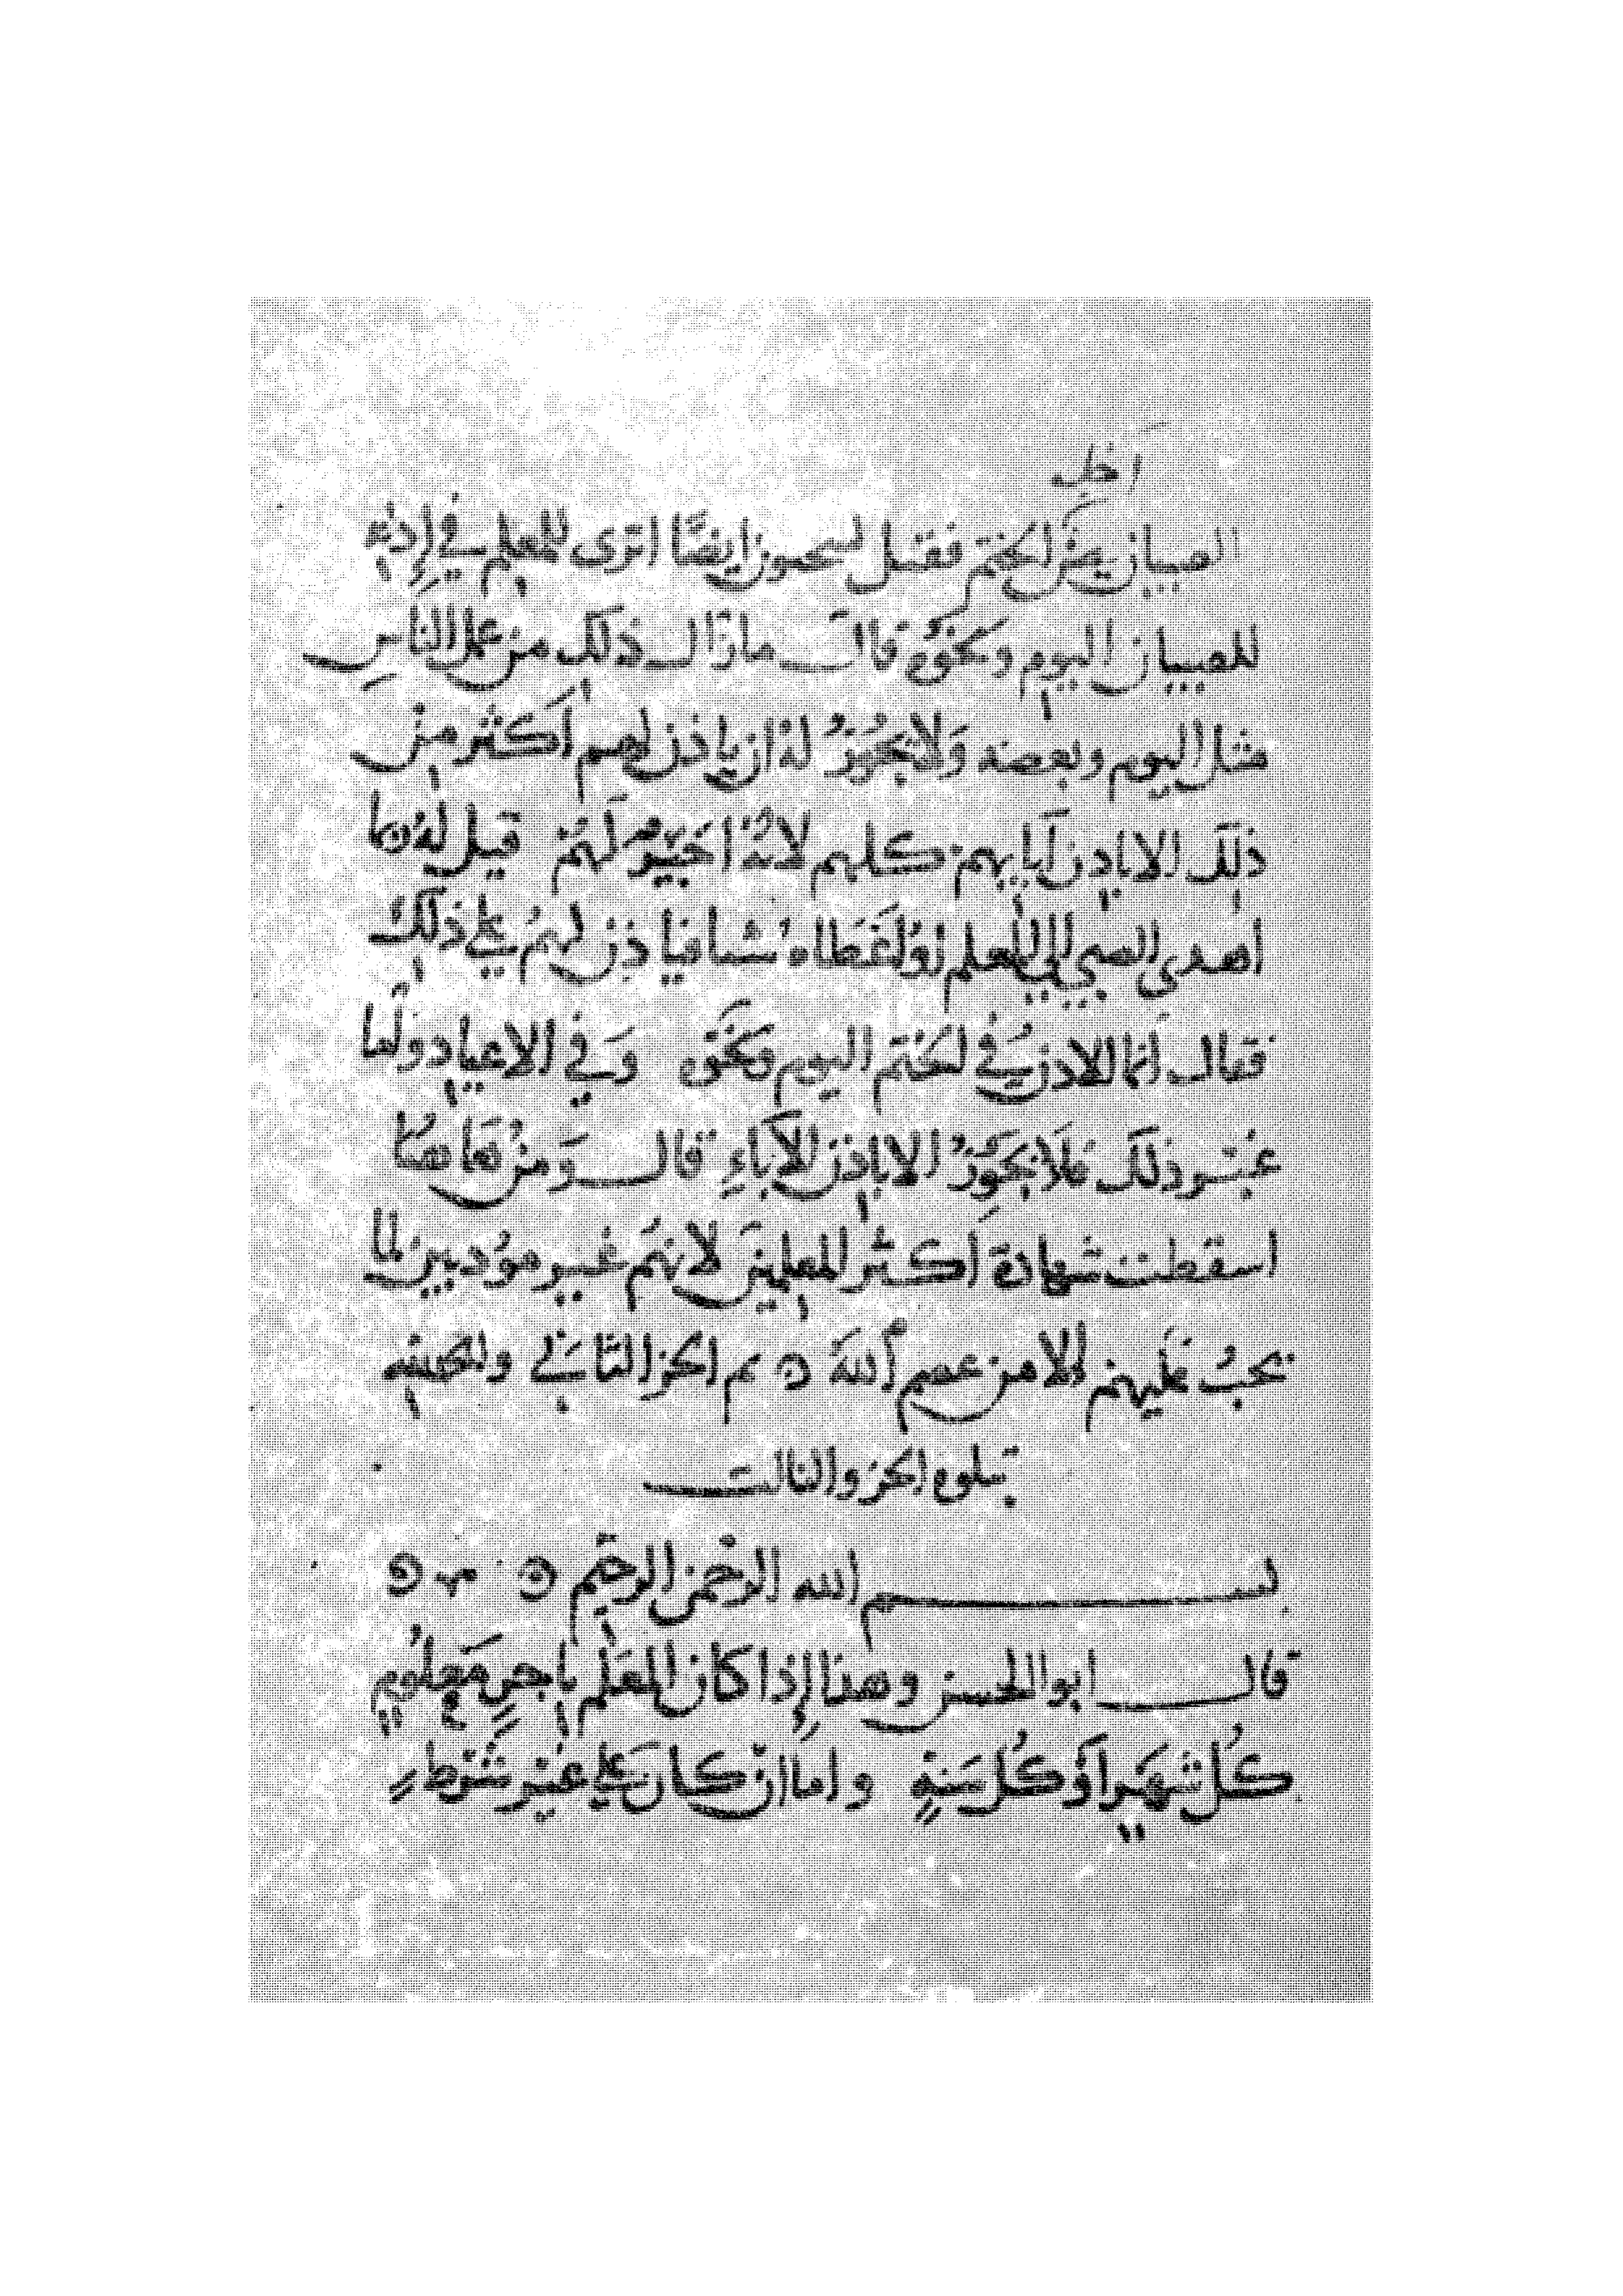 اجل
الصبيان من الختم فقيل لسحنون ايضًا اترى للمعلم في إذنه
للصبيان اليوم ونحوه قال ما زال ذلك من عمل الناس
مثل اليوم وبعضه وَلا يَجُوزُ لهُ ان ياذن لهم أكثر من
ذلك الا باذن آبايهم كلهم لانهُ اجيرٌ لَهُمْ قيل له ما
اهدى الصبي للمعلم او اعطاه شيا فياذن لهمُ على ذلك
فقال انما الاذن في الختم اليوم ونحوه وَفي الاعياد واما
غير ذلك فَلا يجوزُ الا باذن الآباءِ قال وَمِنْ هاهنا
اسقطت شهادة أكثر المعلمين لانهم غير مؤدبين لما
يجبُ عَليهم الا من عصم اللهُ تم الجز الثاني والحمد لله
يتلوه الجز والثالث
بسم الله الرحمن الرحيم
قال ابو الحسن وهذا إذا كان المعَلم باجرٍ مَعلُومٍ
كُل شهرٍ أوْ كُل سَنةٍ واما ان كان على غير شَرْطٍ